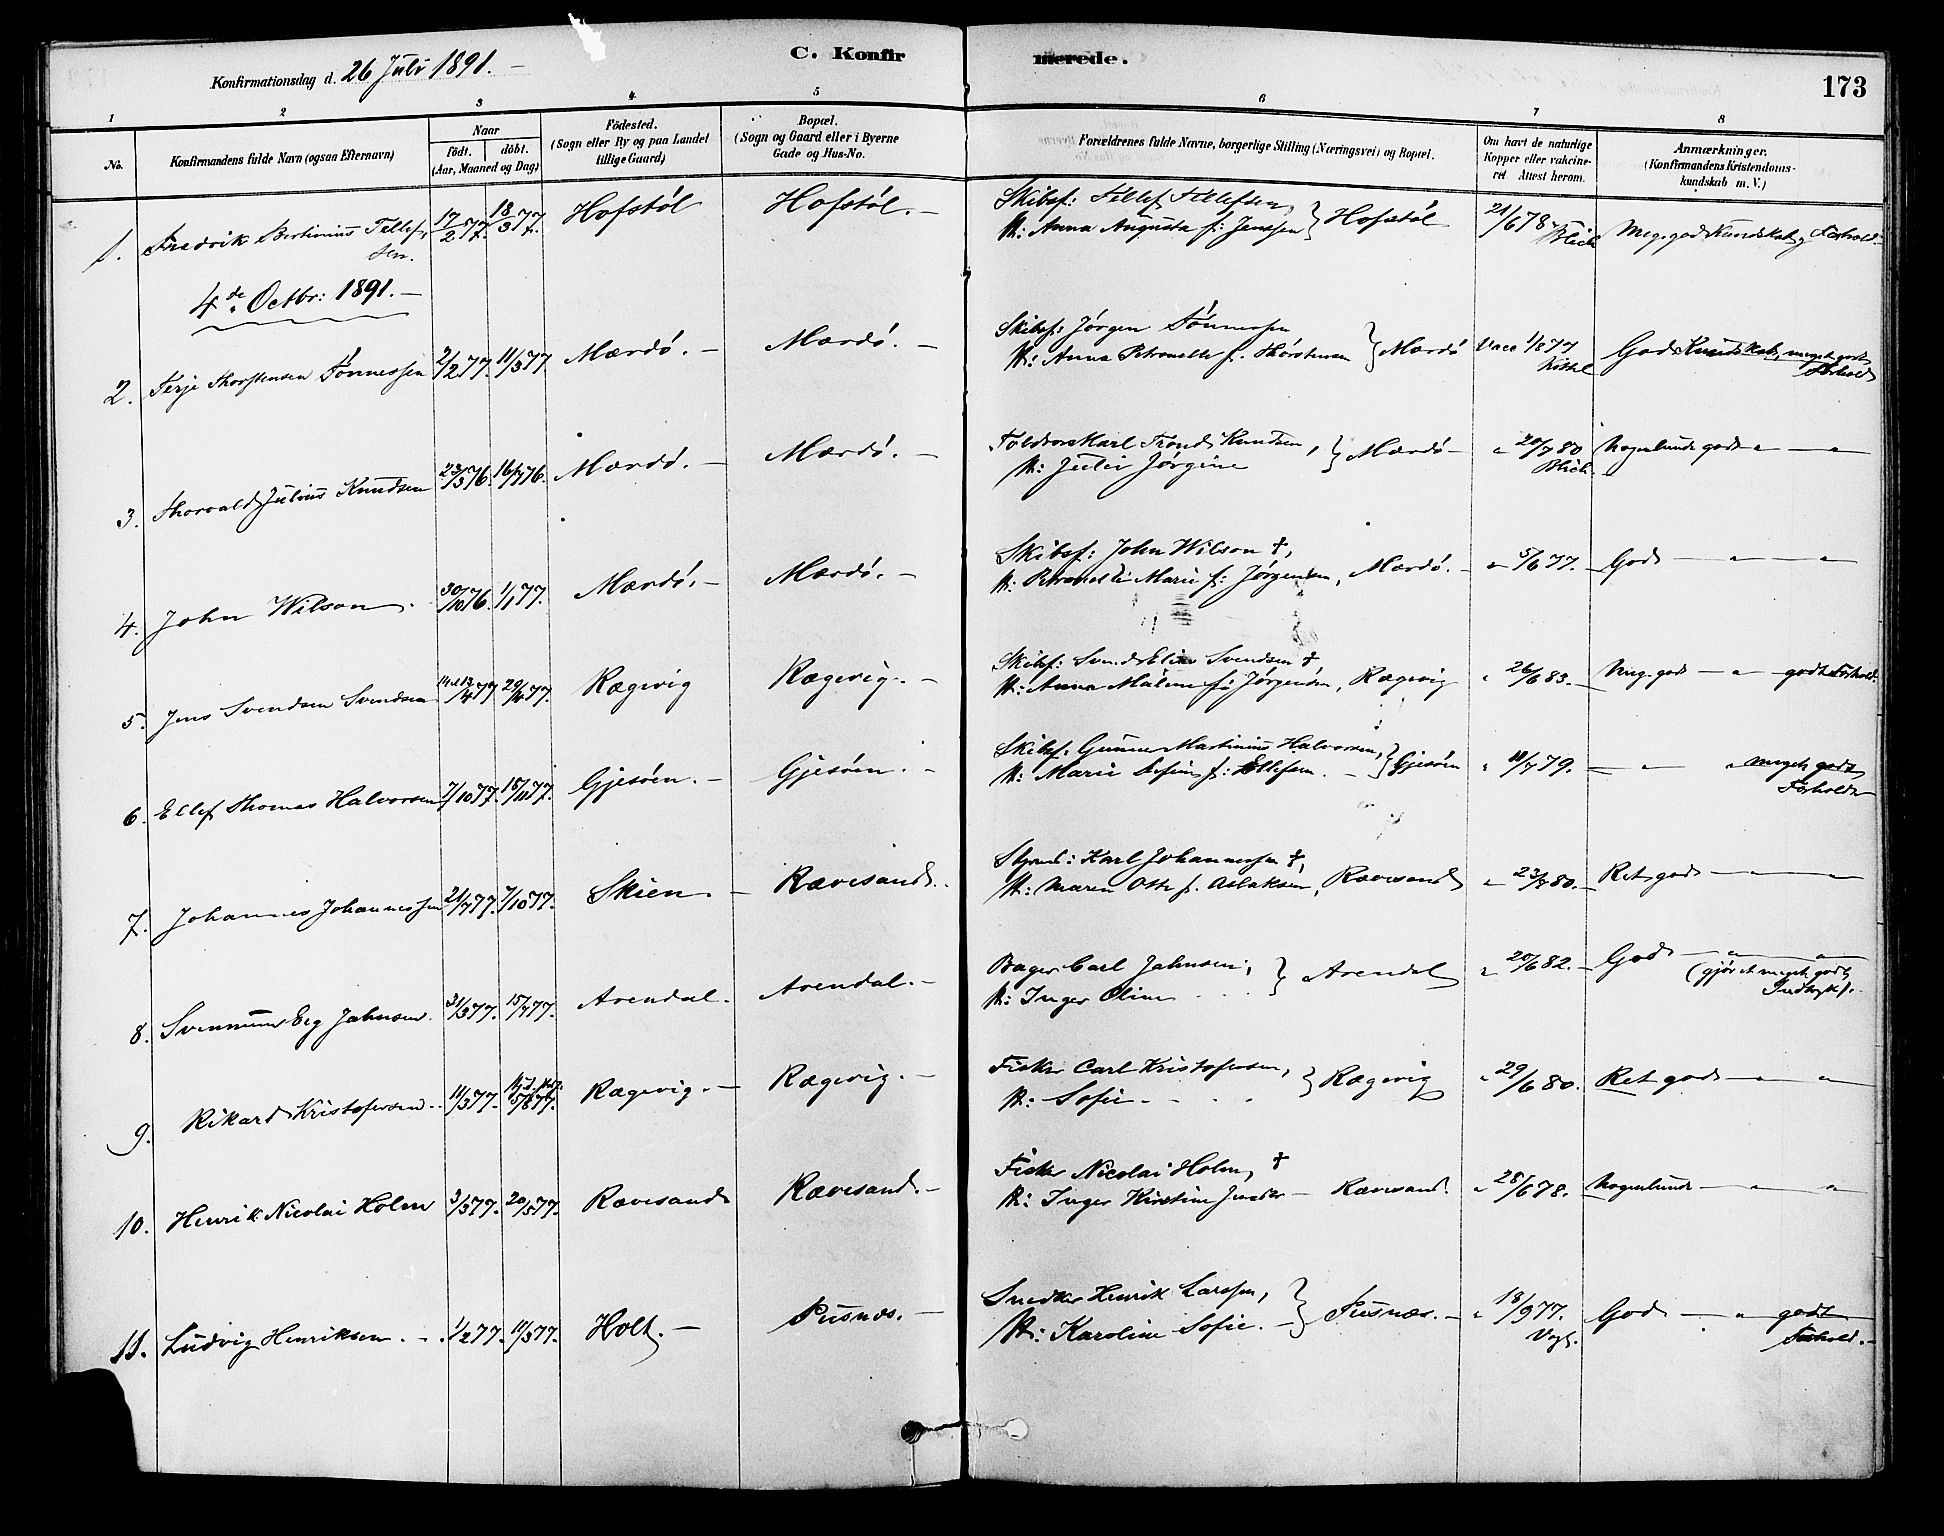 C. Konfirmerede.
173
Konfirmationsdag d. 26 Juli 1891. -
1 2 3 4 5 6 7 8
No. Konfirmandens fulde Navn (ogsaa Efternavn) Naar födt. döbt. (Aar, Maaned og Dag) Födested. (Sogn eller By og paa Landet tillige Gaard) Bopæl. (Sogn og Gaard eller i Byerne Gade og Hus-No. Forældrenes fulde Navne, borgerlige Stilling (Næringsvei) og Bopæl. Om havt de naturlige Kopper eller vakcineret. Attest herom. Anmærkninger. (Konfirmandens Kristendomskundskab m. V.)
1. Fredrik Bertinius Tellefsen. 17/2 77. 18/3 77. Hofstöl Hofstöl. - Skibsf: Tellef Tellefsen, H: Anna Augusta f: Jenssen } Hofstöl 21/6 78 Blich Meg. god Kundskab, Forhold.
4de Octbr: 1891. -
2. Terje Thorstensen Tönnessen 2/2 77. 11/3 77 Mærdö. - Mærdö. - Skibsf: Jörgen Tönnessen H: Anna Petronelle f. Thorstensen } Mærdö Vacc 1/8 77 Kittel God Kundskab, meget godt Forhold
3. Thorvald Julius Knudsen 23/5 76. 16/7 76. Mærdö. - Mærdö. - Trond Knudsen, H: Julie Jörgine } Mærdö - " 20/7 80 Blich. Nogenlunde godt " - "
4. John Wilson. 30/10 76. 1/1 77. Mærdö. - Mærdö. - Skibsf: John Wilson †, H: Petronelle Marie f: Jörgensen, Mærdö. - " 5/6 77. - God - " - "
5. Jens Svendsen Svendsen 29/4 77. Rægevig Rægevig. - Skibsf: Svend Elias Svendsen †, H: Anna Maline f: Jörgensen, Rægevig " 26/6 83. - Meg. god - " - godt Forhold.
6. Ellef Thomas Halvorsen 7/10 77. 18/11 77. Gjesöen. - Gjesöen. - Skibsf: Gunner Martinius Halvorsen, H: Marie Sofie f: Ellefsen. - } Gjesöen " 18/7 79. - " " meget godt Forhold
7. Johannes Johannessen 21/7 77. 7/10 77. Skien. - Rævesand. Styrm: Karl Johannessen †, H: Maren Otte f. Aslaksen, Rævesand " 23/7 80. - Ret god - " - "
8. Jahnsen. 31/3 77. 15/7 77. Arendal. Arendal. - Bager Carl Jahnsen, H: Inger Oline } Arendal " 20/6 82. - God - " - " (gjör et meget godt Indtryk).
9. Rikard Kristofersen. 11/3 77. Rægevig. - Rægevig. - Fisker Carl Kristofersen, H: Sofie. } Rægevig " 29/6 80. Ret god - " - "
10. Henrik Nicolai Holm 3/3 77. 20/5 77. Rævesand Rævesand. - Fisker Nicolai Holm, † H: Inger Kirstine - Rævesand. " 28/6 78. Nogenlunde - " - "
11. Ludvig Henriksen. - 1/2 77. 11/3 77. Holt. - Pusnæs. - Snedker Henrik Larssen, H: Karoline Sofie. - } Pusnæs. - " 18/9 77. Vogt. God - " godt Forhold. -